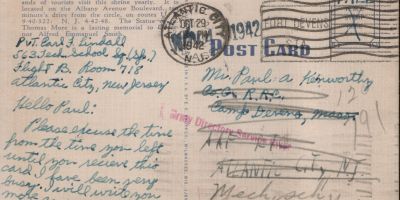 ends of tourists visit this shrine yearly. It is
located on the Albany Avenue Boulevard,
minute's drive from the circle, on routes
4-40-322; N. J. 4-42-48. The Statue
Thomas More is a lasting memorial to
Alfred Emanuel Smith.
Pvt. Carl F. Kendall
563 Tech. School Sq. (Sp.)
Flight B. Room 718
Atlantic City, New Jersey
Hello Paul:
Please excuse the time
from the time you left
until you recieve this
card. I have been very
busy. I will write you
ATLANTIC CITY
OCT 29
1942
N.J.
1942
FORT DEVENS
POST CARD
Mr. Paul A Kenworthy
Co. C. R.R.C.
Camp Devens, Mass.
Army Directory Service
AAF
ATLANTIC CITY NJ